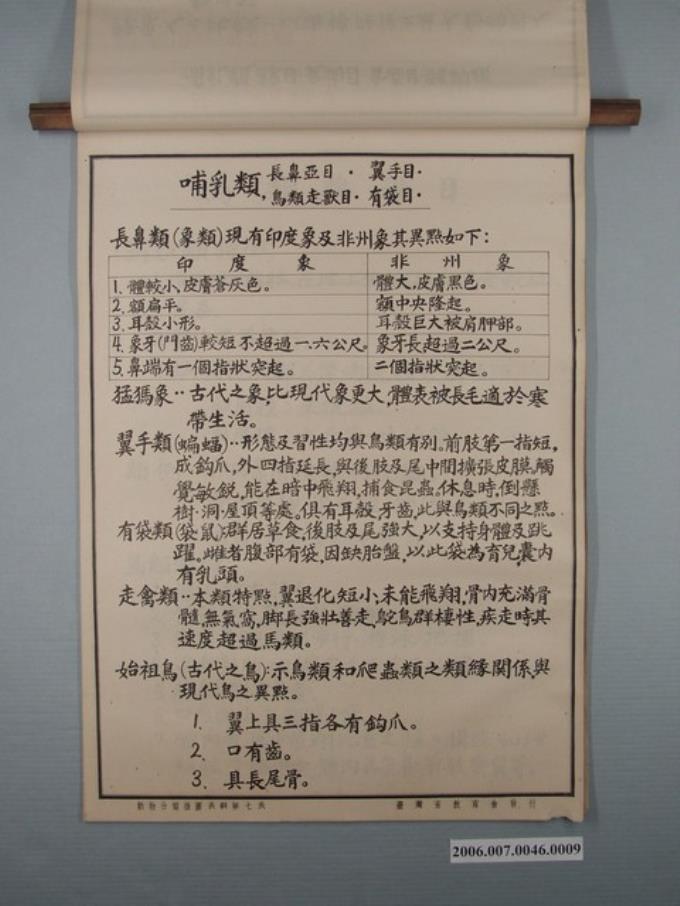 哺乳類, 長鼻亞目· 翼手目·
鳥類走獸目· 有袋目·
長鼻類(象類)現有印度象及非州象其異點如下:
印度象 非州象
1. 體較小、皮膚蒼灰色。 體大,皮膚黑色。
2. 額扁平。 額中央隆起。
3. 耳殼小形。 耳殼巨大被肩胛部。
4. 象牙(門齒)較短不超過一、六公尺。 象牙長超過二公尺。
5. 鼻端有一個指狀突起。 二個指狀突起。
猛獁象··古代之象,比現代象更大,體表被長毛適於寒
帶生活。
翼手類(蝙蝠)··形態及習性均與鳥類有別。前肢第一指短,
成鈎爪,外四指延長,與後肢及尾中間擴張皮膜,觸
覺敏銳,能在暗中飛翔,捕食昆蟲。休息時,倒懸
樹·洞·屋頂等處。俱有耳殼,牙齒,此與鳥類不同之點。
有袋類(袋鼠):群居草食,後肢及尾強大,以支持身體及跳
躍。雌者腹部有袋,因缺胎盤,以此袋為育兒,囊内
有乳頭。
走禽類··本類特點,翼退化短小、未能飛翔,骨内充滿骨
髓,無氣窩,脚長強壯善走,鴕鳥群棲性,疾走時其
速度超過馬類。
始祖鳥(古代之鳥):示鳥類和爬蟲類之類緣關係與
現代鳥之異點。
1. 翼上具三指各有鈎爪。
2. 口有齒。
3. 具長尾骨。
動物分類掛圖 第七 臺灣省教育會發行
2006.007.0046.0009